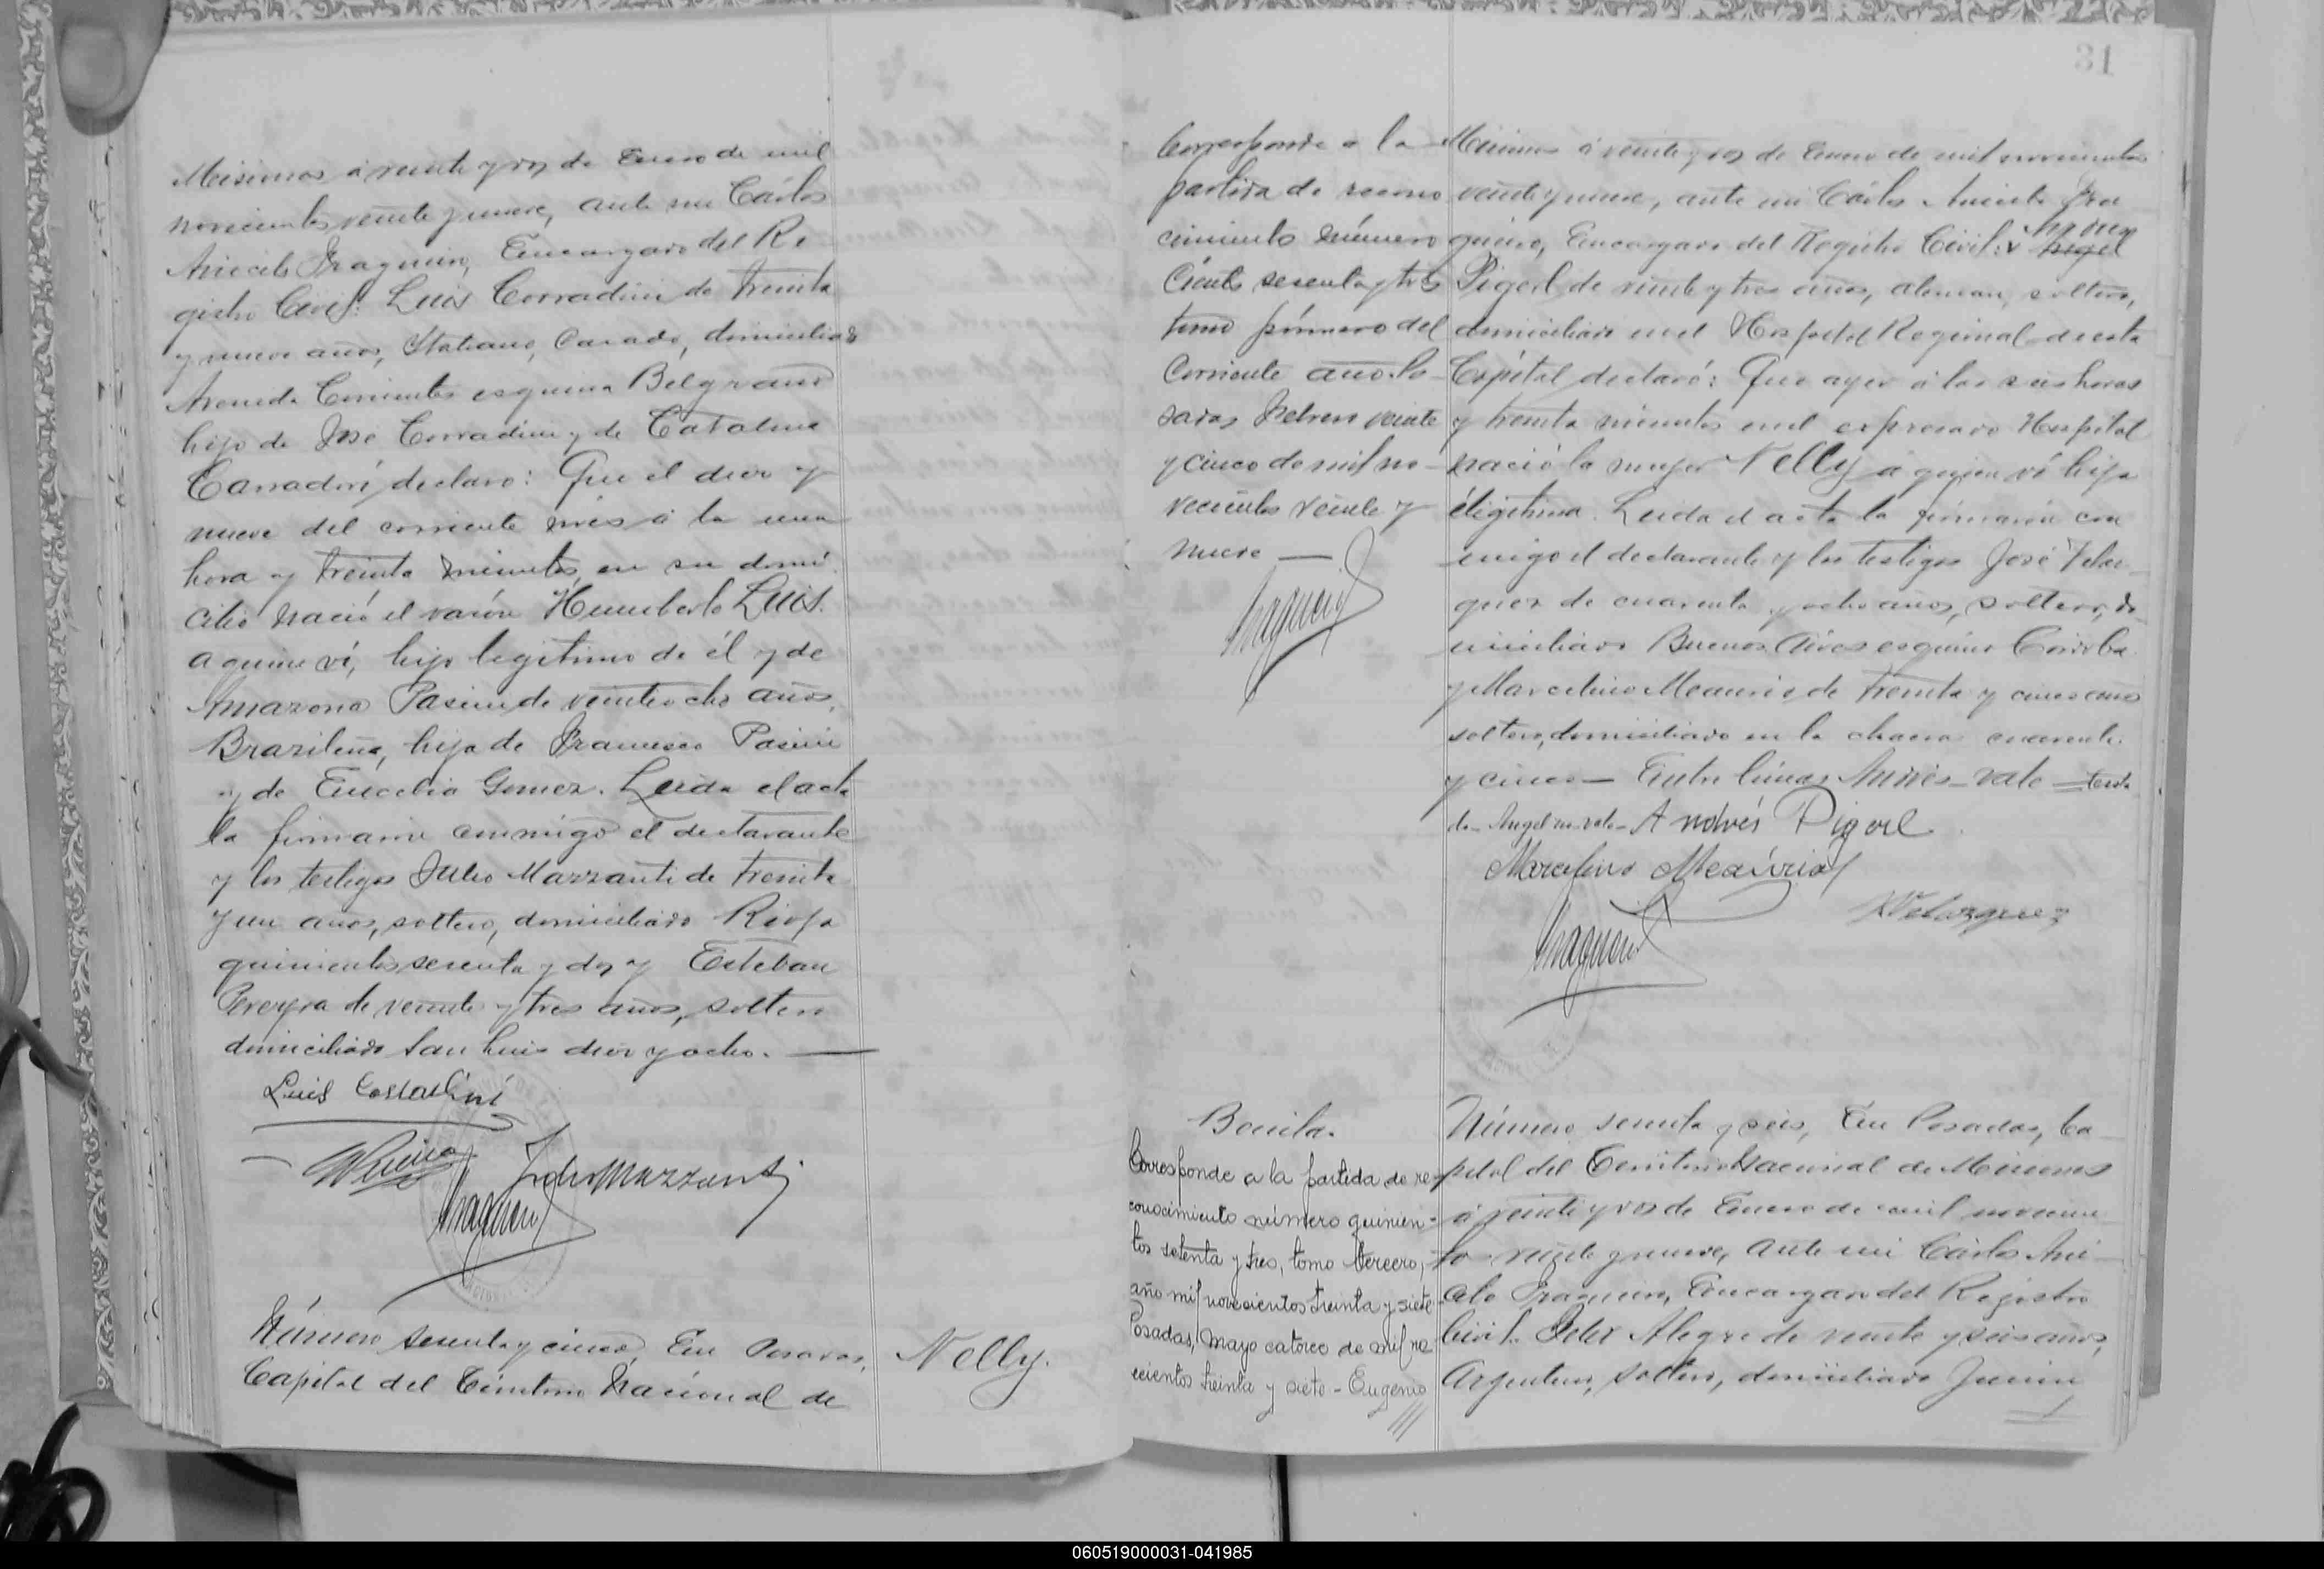 Misiones á veinte y dos de Enero de mil
novecientos veinte y nueve, ante mi Cárlos
Aniceto Fraguein, Encargado del Re
gistro Civil: Luis Corradini de treinta
y nueve años, Italiano, Casado, domiciliado
Avenida Corrientes esquina Belgrano
hijo de José Corradini y de Catalina
Corradini declaro: Que el diez y
nueve del corriente mes á la una
hora y treinta minutos, en su domi
cilio nació el varón Humberto Luis.
a quien ví, hijo legítimo de él y de
Amazona Pasini de veintiocho años,
Brazileña, hija de Francisco Pasini
y de Gomez. Leida el acta
la firmaron conmigo el declarante
y los testigos Julio Mazzanti de treinta
y un años, soltero, domiciliado Rioja
quinientos sesenta y dos y Esteban
Pereyra de veinte y tres años, soltero
domiciliado San Luis diez y ocho.
Luis Corradini
Julio Mazzanti
Fraguein
Número sesenta y cinco En Posadas,
Capital del Territorio Nacional de
Nelly.
31
Corresponde a la
partida de recono
cimiento número
Ciento sesenta y tres
tomo primero del
Corriente año. Po
sadas Febrero veinte
y cinco de mil no
vecientos veinte y
nueve
Fraguein
Misiones á veinte y dos de Enero de mil novecientos
veinte y nueve, ante mi Cárlos Aniceto Fra
guein, Encargado del Registro Civil: Andres Angel
Pigerl de veinte y tres años, aleman, soltero,
domiciliado en el Hospital Regional de esta
Capital declaró: Que ayer á las seis horas
y treinta minutos en el expresado Hospital
nació la mujer Nelly á quien ví hija
ilegítima. Leida el acta la firmaron con
migo el declarante y los testigos José Velaz
quez de cuarenta y ocho años, soltero, do
miciliado Buenos Aires esquina Cordoba
y Marcelino Meaurio de treinta y cinco años
soltero, domiciliado en la chacra cuarenta
y cinco— Entre líneas Andrés—vale—testa
do—Angel no vale— Andrés Pigerl
Marcelino Meaurio
Velazquez
Fraguein
Benita.
Corresponde a la partida de re
conocimiento número quinien-
tos setenta y tres, tomo tercero,
año mil novecientos treinta y siete
Posadas, mayo catorce de mil no
vecientos treinta y siete - Eugenio
Número sesenta y seis, En Posadas, Ca
pital del Territorio Nacional de Misiones
á veinte y dos de Enero de mil novecien
tos veinte y nueve, ante mi Cárlos Ani
ceto Fraguein, Encargado del Registro
Civil. Felix Alegre de veinte y seis años,
Argentino, soltero, domiciliado Junin
060519000031-041985